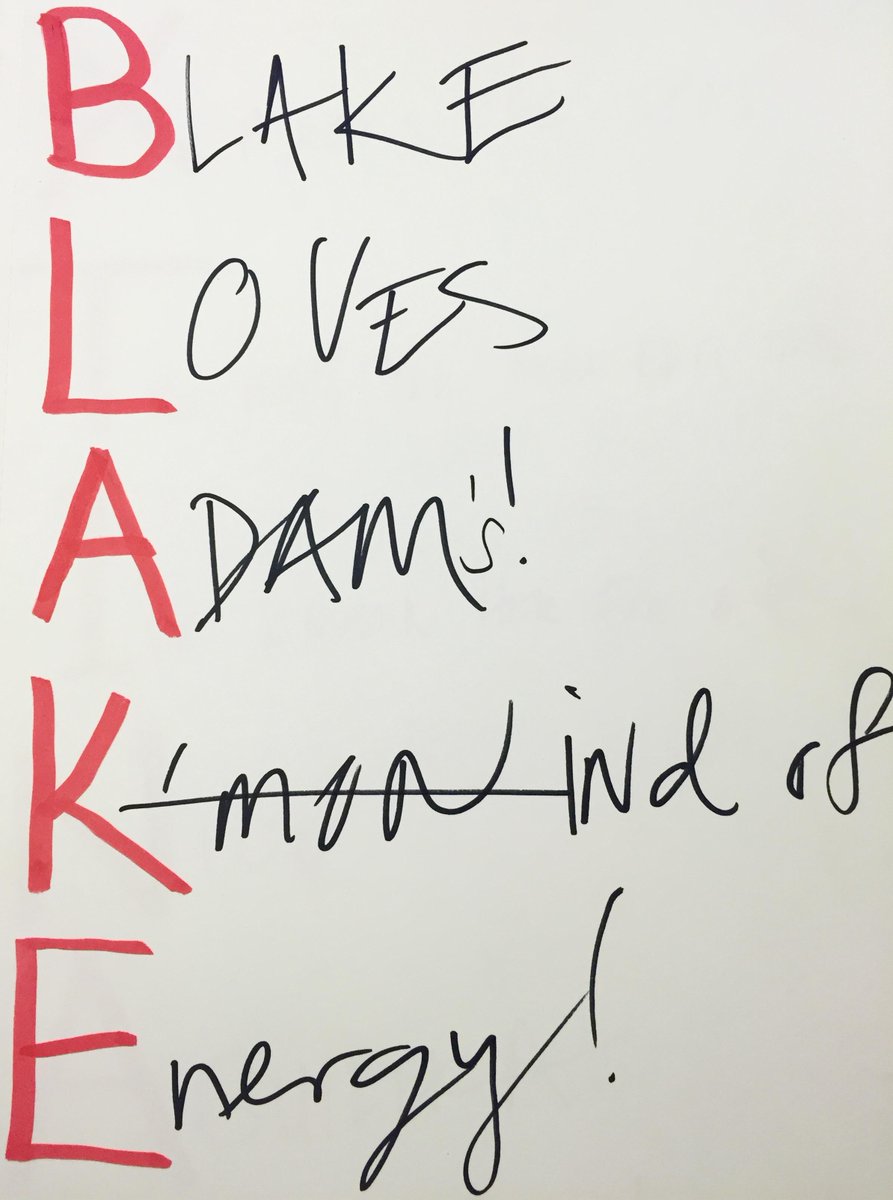 BLAKE
LOVES
ADAM's!
K'mon ind of
Energy!